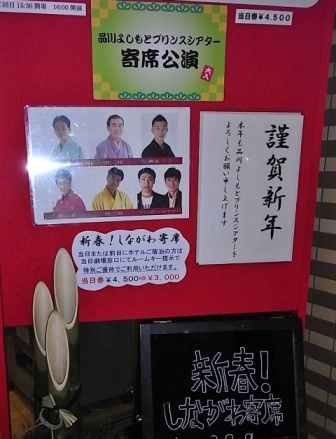 二回目 15:30 開場 16:00 開演
当日券￥4,500
品川よしもとプリンスシアター
寄席公演
謹賀新年
本年も品川よしもとプリンスシアターを
よろしくお願い申し上げます
新春！しながわ寄席
当日または前日にホテルご宿泊の方は
当日劇場窓口にてルームキー提示で
特別ご優待でご利用いただけます。
当日券 ￥4,500⇒￥3,000
新春！
しながわ寄席